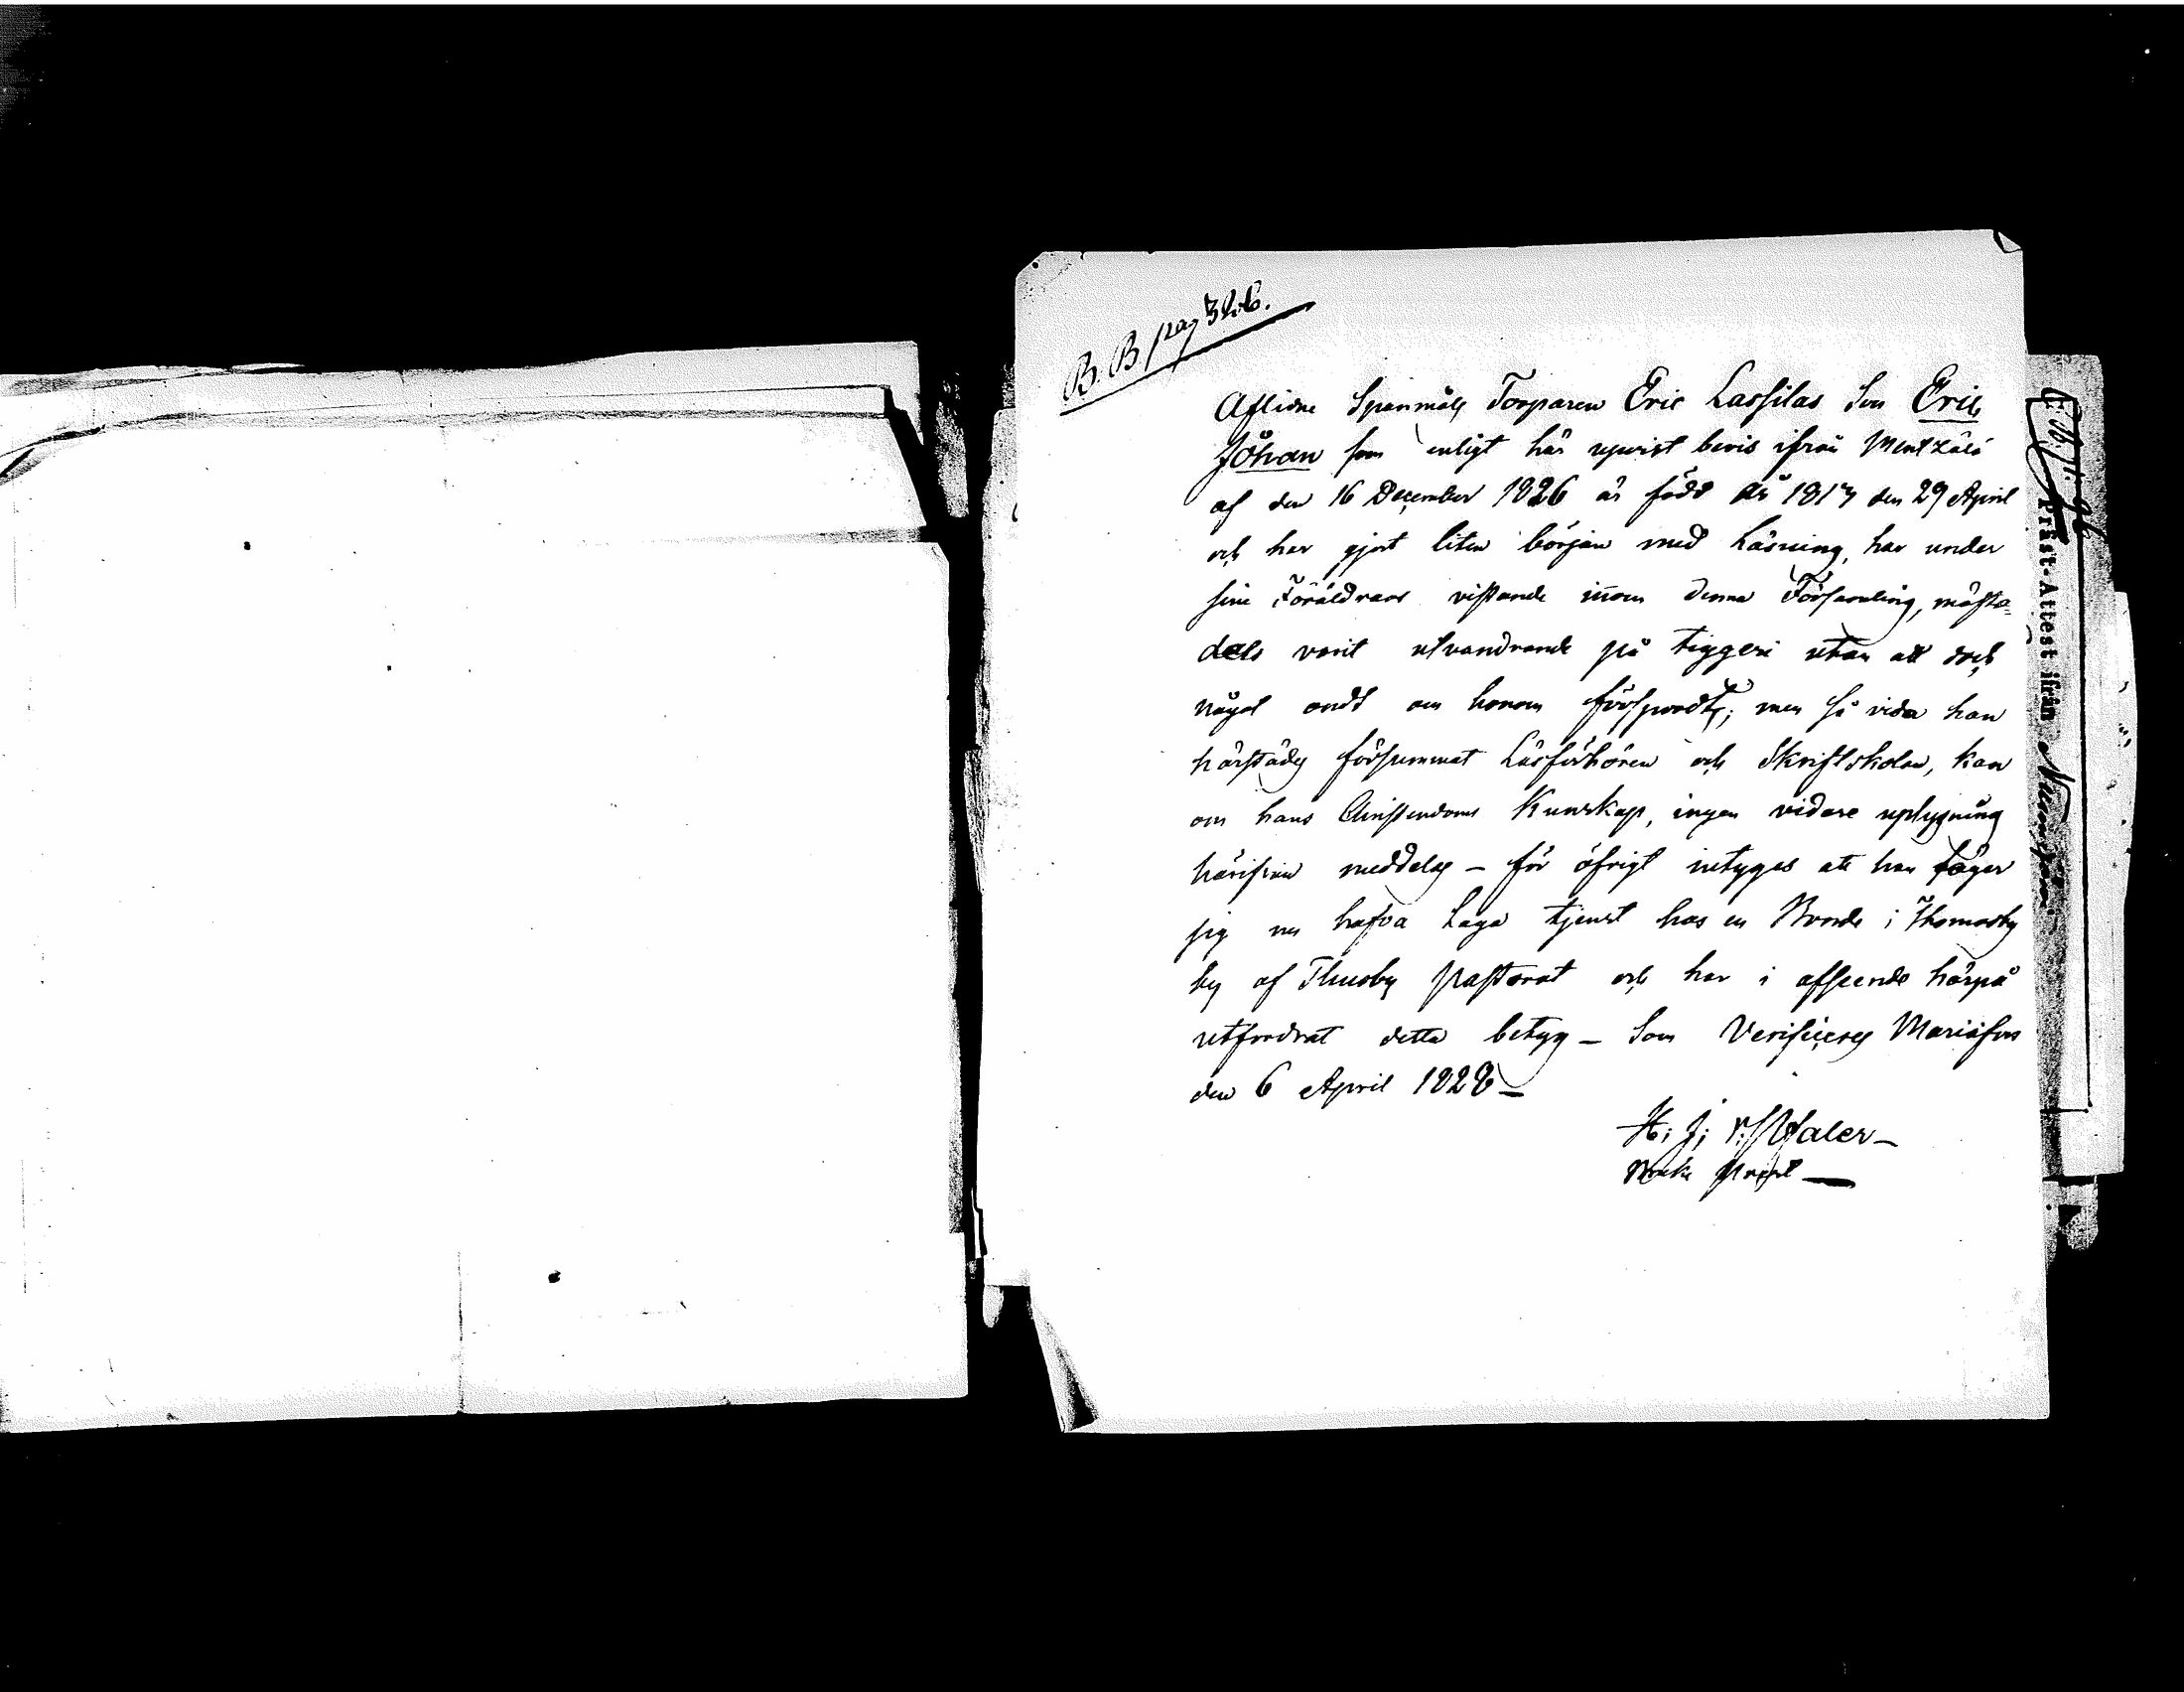 B. B pag 326.
Aflidne Spanmåls Torparen Eric Lassilas Son Eric
Johan som enligt här upvist bevis ifrån Mentzälä
af den 16 December 1826 är född år 1817 den 29 April
och har gjort liten början med Läsning, har under
sine Föräldrars vistande inom denna Församling, mästa-
dels varit utvandrande på tiggeri utan att dock
något ondt om honom försports; men så vida han
härstädes försummat Läsförhören och Skriftskolan, kan
om hans Christendoms Kunskap, ingen vidare uplysning
härifrån meddelas – för öfrigt intyges att han säger
sig nu hafva Laga tjenst hos en Bonde i Thomasby
by af Thusby pastorat och har i afseende härpå
utfordrat detta betyg – Som Verificeres Mariæfors
den 6 April 1828 –
H: J: Whaler –
Bruks Præst –
Präst-Attest ifrån